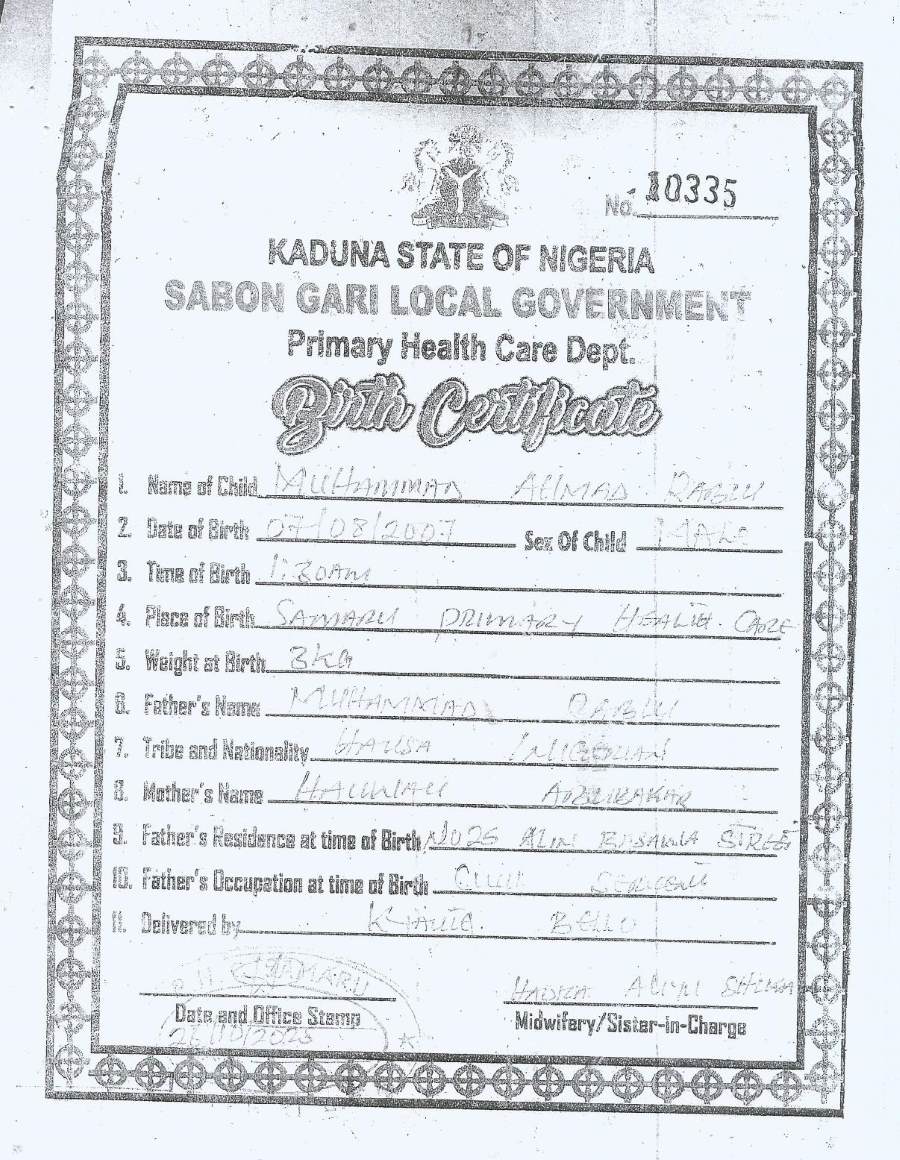 No. 10335
KADUNA STATE OF NIGERIA
SABON GARI LOCAL GOVERNMENT
Primary Health Care Dept.
Birth Certificate
1. Name of Child MUHAMMAD AHMAD RABIU
2. Date of Birth 07/08/2007 Sex Of Child MALE
3. Time of Birth 1:30AM
4. Place of Birth SAMARU PRIMARY HEALTH CARE
5. Weight at Birth 3KG
6. Father's Name MUHAMMAD RABIU
7. Tribe and Nationality HAUSA / NIGERIAN
8. Mother's Name ABUBAKAR
9. Father's Residence at time of Birth NO 25 STREET
10. Father's Occupation at time of Birth CIVIL SERVENT
11. Delivered by BELLO
SAMARU
HADIZA ALIYU SHIKA
Date and Office Stamp
Midwifery/Sister-in-Charge